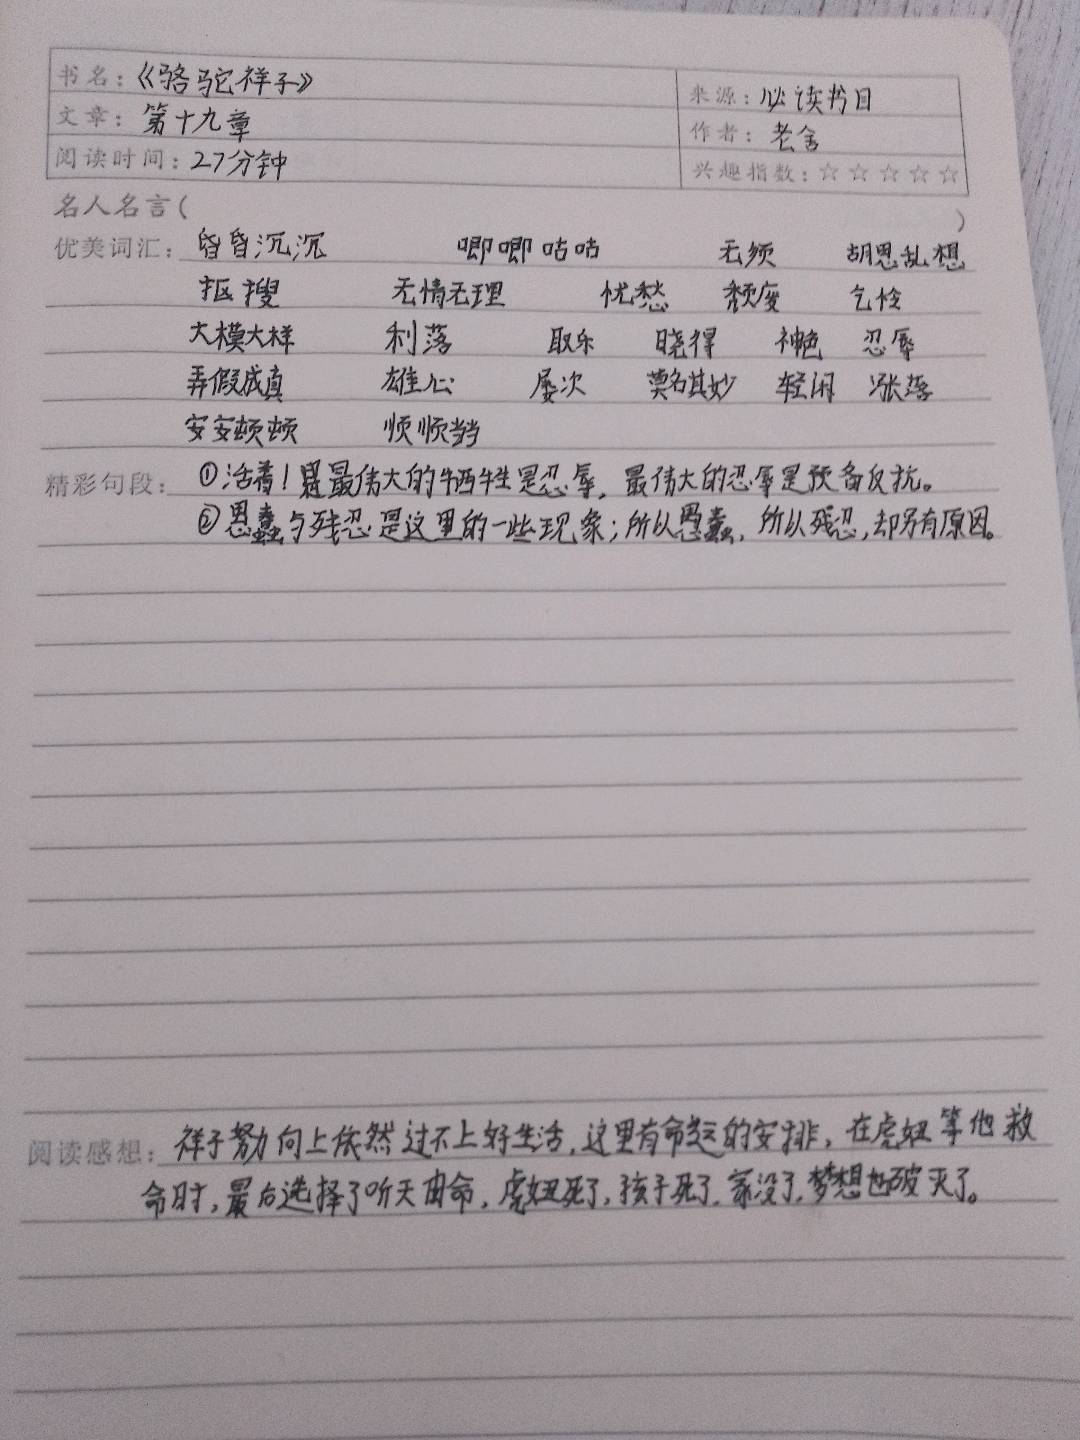 书名：《骆驼祥子》 来源：必读书目
文章：第十九章 作者：老舍
阅读时间：27分钟 兴趣指数：☆☆☆☆☆
名人名言（ ）
优美词汇：昏昏沉沉 唧唧咕咕 无须 胡思乱想
抠搜 无情无理 忧愁 颓废 乞怜
大模大样 利落 取乐 晓得 神色 忍辱
弄假成真 雄心 屡次 莫名其妙 轻闲 涨落
安安顿顿 顺顺当当
精彩句段：①活着！最伟大的牺牲是忍辱，最伟大的忍辱是预备反抗。
②愚蠢与残忍是这里的一些现象；所以愚蠢，所以残忍，却另有原因。
阅读感想：祥子努力向上依然过不上好生活，这里有命运的安排，在虎妞等他救
命时，最后选择了听天由命，虎妞死了，孩子死了，家没了，梦想也破灭了。